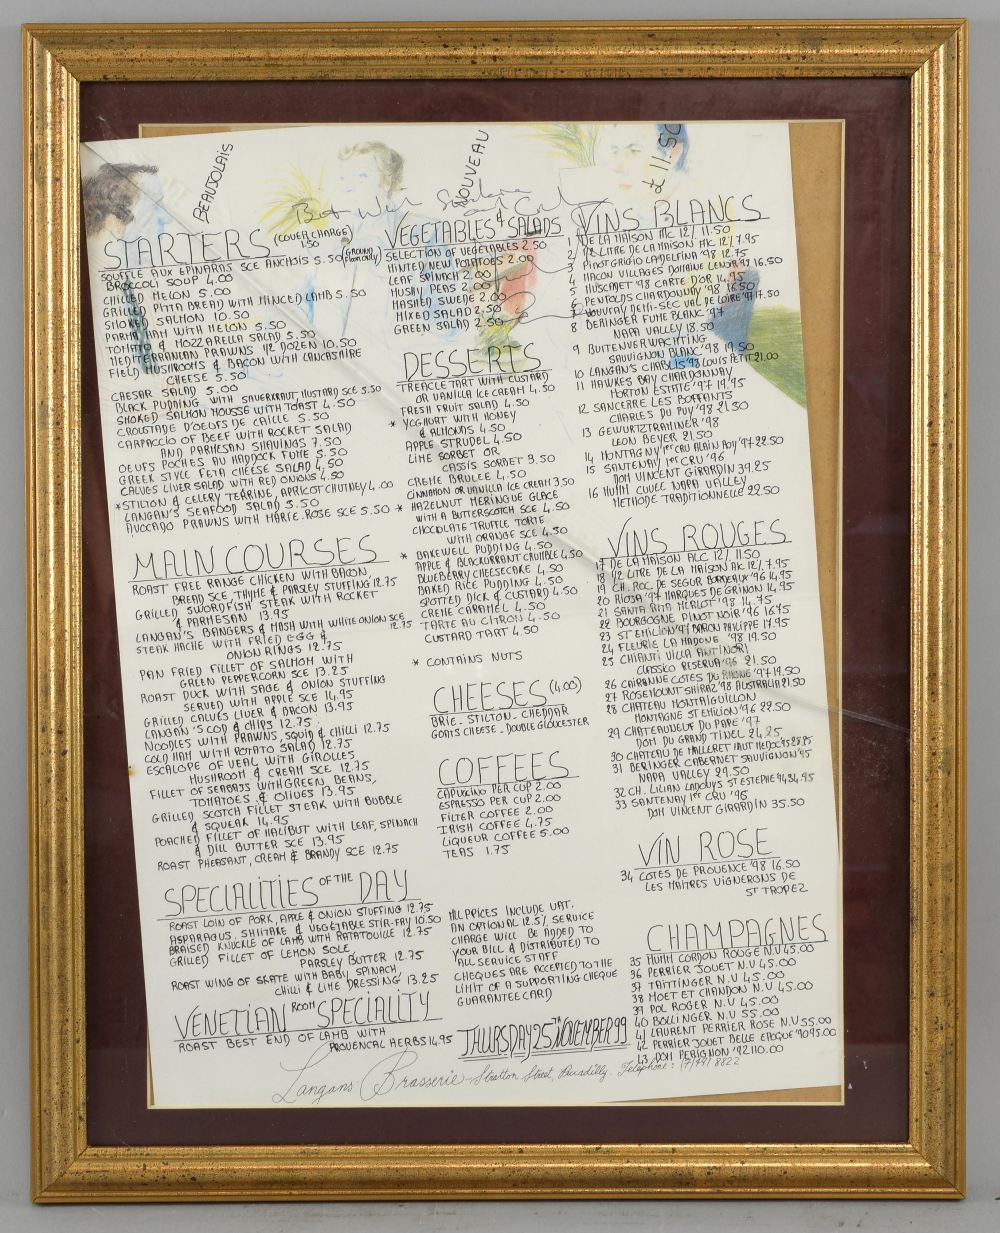 BEAUJOLAIS
NOUVEAU
£ 11.50
Best Wishes
STARTERS (COVER CHARGE) 1.50
SOUFFLE AUX EPINARDS SCE ANCHOIS 5.50 (GROUND FLOOR ONLY)
BROCCOLI SOUP 4.00
CHILLED MELON 5.00
GRILLED PITTA BREAD WITH MINCED LAMB 5.50
SMOKED SALMON 10.50
PARMA HAM WITH MELON 5.50
TOMATO & MOZZARELLA SALAD 5.50
MEDITERRANEAN PRAWNS 1/2 DOZEN 10.50
FIELD MUSHROOMS & BACON WITH LANCASHIRE
CHEESE 5.50
CAESAR SALAD 5.00
BLACK PUDDING WITH SAUERKRAUT, MUSTARD SCE 5.50
SMOKED SALMON MOUSSE WITH TOAST 4.50
CROUSTADE D'OEUFS DE CAILLE 5.50
CARPACCIO OF BEEF WITH ROCKET SALAD
AND PARMESAN SHAVINGS 7.50
OEUFS POCHES AU HADDOCK FUME 5.50
GREEK STYLE FETA CHEESE SALAD 4.50
CALVES LIVER SALAD WITH RED ONIONS 4.50
*STILTON & CELERY TERRINE, APRICOT CHUTNEY 4.00
LANGAN'S SEAFOOD SALAD 5.50
AVOCADO PRAWNS WITH MARIE-ROSE SCE 5.50
MAIN COURSES
ROAST FREE RANGE CHICKEN WITH BACON,
BREAD SCE, THYME & PARSLEY STUFFING 12.75
GRILLED SWORDFISH STEAK WITH ROCKET
& PARMESAN 13.95
LANGAN'S BANGERS & MASH WITH WHITE ONION SCE 12.75
STEAK HACHE WITH FRIED EGG &
ONION RINGS 12.75
PAN FRIED FILLET OF SALMON WITH
GREEN PEPPERCORN SCE 13.25
ROAST DUCK WITH SAGE & ONION STUFFING
SERVED WITH APPLE SCE 14.95
GRILLED CALVES LIVER & BACON 13.95
LANGAN'S COD & CHIPS 12.75
NOODLES WITH PRAWNS, SQUID & CHILLI 12.75
COLD HAM WITH POTATO SALAD 12.75
ESCALOPE OF VEAL WITH GIROLLES
MUSHROOM & CREAM SCE 12.75
FILLET OF SEABASS WITH GREEN BEANS,
TOMATOES & OLIVES 13.95
GRILLED SCOTCH FILLET STEAK WITH BUBBLE
& SQUEAK 14.95
POACHED FILLET OF HALIBUT WITH LEAF, SPINACH
& DILL BUTTER SCE 13.95
ROAST PHEASANT, CREAM & BRANDY SCE 12.75
SPECIALITIES OF THE DAY
ROAST LOIN OF PORK, APPLE & ONION STUFFING 12.75
ASPARAGUS, SHIITAKE & VEGETABLE STIR-FRY 10.50
BRAISED KNUCKLE OF LAMB WITH RATATOUILLE 12.75
GRILLED FILLET OF LEMON SOLE,
PARSLEY BUTTER 12.75
ROAST WING OF SKATE WITH BABY SPINACH,
CHILLI & LIME DRESSING 13.25
VENETIAN ROOM SPECIALITY
ROAST BEST END OF LAMB WITH
PROVENCAL HERBS 14.95
VEGETABLES & SALADS
SELECTION OF VEGETABLES 2.50
MINTED NEW POTATOES 2.00
LEAF SPINACH 2.00
MUSHY PEAS 2.00
MASHED SWEDE 2.00
MIXED SALAD 2.50
GREEN SALAD 2.50
DESSERTS
TREACLE TART WITH CUSTARD
OR VANILLA ICE CREAM 4.50
FRESH FRUIT SALAD 4.50
* YOGHURT WITH HONEY
& ALMONDS 4.50
APPLE STRUDEL 4.50
LIME SORBET OR
CASSIS SORBET 3.50
CREME BRULEE 4.50
CINNAMON OR VANILLA ICE CREAM 3.50
* HAZELNUT MERINGUE GLACE
WITH A BUTTERSCOTCH SCE 4.50
CHOCOLATE TRUFFLE TORTE
WITH ORANGE SCE 4.50
* BAKEWELL PUDDING 4.50
APPLE & BLACKCURRANT CRUMBLE 4.50
BLUEBERRY CHEESECAKE 4.50
BAKED RICE PUDDING 4.50
SPOTTED DICK & CUSTARD 4.50
CREME CARAMEL 4.50
TARTE AU CITRON 4.50
CUSTARD TART 4.50
* CONTAINS NUTS
CHEESES (4.00)
BRIE - STILTON - CHEDDAR
GOATS CHEESE - DOUBLE GLOUCESTER
COFFEES
CAPUCINO PER CUP 2.00
ESPRESSO PER CUP 2.00
FILTER COFFEE 2.00
IRISH COFFEE 4.75
LIQUEUR COFFEE 5.00
TEAS 1.75
ALL PRICES INCLUDE VAT.
AN OPTIONAL 12.5% SERVICE
CHARGE WILL BE ADDED TO
YOUR BILL & DISTRIBUTED TO
ALL SERVICE STAFF
CHEQUES ARE ACCEPTED TO THE
LIMIT OF A SUPPORTING CHEQUE
GUARANTEE CARD
THURSDAY 25TH NOVEMBER 99
VINS BLANCS
1 DE LA MAISON ALC 12% 11.50
2 1/2 LITRE DE LA MAISON ALC 12% 7.95
3 PINOT GRIGIO LA DELFINA '98 12.75
4 MACON VILLAGES DOMAINE LENOIR '97 16.50
5 MUSCADET '98 CARTE D'OR 14.95
6 PENFOLDS CHARDONNAY '98 16.50
7 VOUVRAY DEMI-SEC VAL DE LOIRE '97 17.50
8 BERINGER FUME BLANC '97
NAPA VALLEY 18.50
9 BUITENVERWACHTING
SAUVIGNON BLANC '98 19.50
10 LANGAN'S CHABLIS '98 LOUIS PETIT 21.00
11 HAWKES BAY CHARDONNAY
MORTON ESTATE '97 19.95
12 SANCERRE LES BOFFANTS
CHARLES DU PUY '98 21.50
13 GEWURTZTRAMINER '98
LEON BEYER 21.50
14 MONTAGNY 1er CRU ALAIN ROY '97 22.50
15 SANTENAY 1er CRU '96
DOM VINCENT GIRARDIN 39.25
16 MUMM CUVEE NAPA VALLEY
METHODE TRADITIONNELLE 22.50
VINS ROUGES
17 DE LA MAISON ALC 12% 11.50
18 1/2 LITRE DE LA MAISON ALC 12% 7.95
19 CH. ROC DE SEGUR BORDEAUX '96 14.95
20 RIOJA '97 MARQUES DE GRINON 14.95
21 SANTA RITA MERLOT '98 14.75
22 BOURGOGNE PINOT NOIR '96 16.75
23 ST EMILION '97 BARON PHILIPPE 17.95
24 FLEURIE LA MADONE '98 19.50
25 CHIANTI VILLA ANTINORI
CLASSICO RESERVA '96 21.50
26 CAIRANNE COTES DU RHONE '97 19.50
27 ROSEMOUNT SHIRAZ '98 AUSTRALIA 21.50
28 CHATEAU MONTAIGUILLON
MONTAGNE ST EMILION '96 22.50
29 CHATEAUNEUF DU PAPE '97
DOM DU GRAND TINEL 24.25
30 CHATEAU DE MALLERET HAUT MEDOC '95 28.95
31 BERINGER CABERNET SAUVIGNON '95
NAPA VALLEY 29.50
32 CH. LILIAN LADOUYS ST ESTEPHE '94 34.95
33 SANTENAY 1er CRU '95
DOM VINCENT GIRARDIN 35.50
VIN ROSE
34 COTES DE PROVENCE '98 16.50
LES MAITRES VIGNERONS DE
ST TROPEZ
CHAMPAGNES
35 MUMM CORDON ROUGE N.V 45.00
36 PERRIER JOUET N.V 45.00
37 TAITTINGER N.V 45.00
38 MOET ET CHANDON N.V 45.00
39 POL ROGER N.V 45.00
40 BOLLINGER N.V 55.00
41 LAURENT PERRIER ROSE N.V 55.00
42 PERRIER JOUET BELLE EPOQUE '90 95.00
43 DOM PERIGNON '92 110.00
Langans Brasserie - Stratton Street, Piccadilly. Telephone: (71) 491 8822